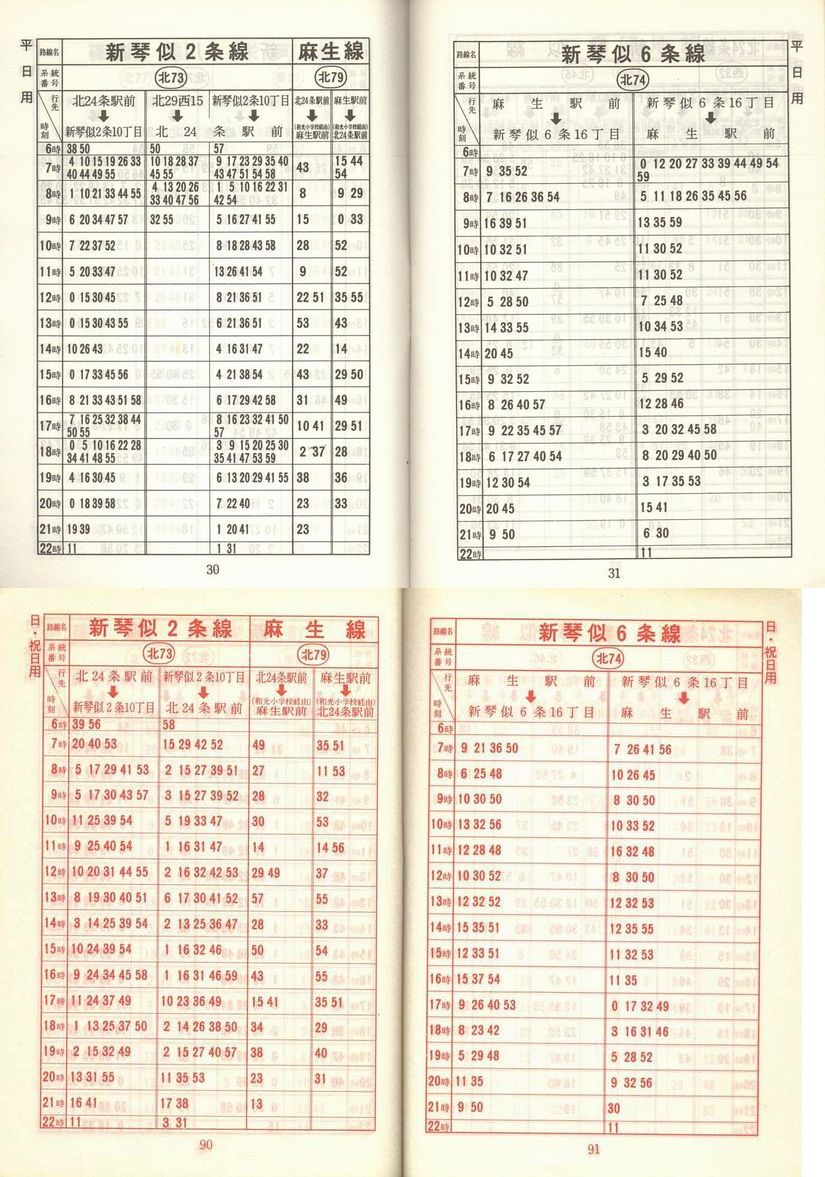 平日用
路線名 新琴似2条線 麻生線
系統番号 北73 北79
行先 時刻
北24条駅前 ↓ 新琴似2条10丁目
北29西15 新琴似2条10丁目 ↓ 北24条駅前
北24条駅前 ↓ (和光小学校経由) 麻生駅前
麻生駅前 ↓ (和光小学校経由) 北24条駅前
6時 38 50 50 57
7時 4 10 15 19 26 33 10 18 28 37 9 17 23 29 35 40 43 15 44
40 44 49 55 45 55 43 47 51 54 58 54
8時 1 10 21 33 44 55 4 13 20 26 1 5 10 16 22 31 8 9 29
33 40 47 56 42 54
9時 6 20 34 47 57 32 55 5 16 27 41 55 15 0 33
10時 7 22 37 52 8 18 28 43 58 28 52
11時 5 20 33 47 13 26 41 54 9 52
12時 0 15 30 45 8 21 36 51 22 51 35 55
13時 0 15 30 43 55 6 21 36 51 53 43
14時 10 26 43 4 16 31 47 22 14
15時 0 17 33 45 56 4 21 38 54 43 29 50
16時 8 21 33 43 51 58 6 17 29 42 58 31 49
17時 7 16 25 32 38 44 8 16 23 32 41 50 10 41 29 51
50 55 57
18時 0 5 10 16 22 28 3 9 15 20 25 30 2 37 28
34 41 48 55 35 41 47 53 59
19時 4 16 30 45 6 13 20 29 41 55 38 36
20時 0 18 39 58 7 22 40 23 33
21時 19 39 1 20 41 23
22時 11 1 31
30
平日用
路線名 新琴似6条線
系統番号 北74
行先 時刻
麻生駅前 ↓ 新琴似6条16丁目
新琴似6条16丁目 ↓ 麻生駅前
6時
7時 9 35 52 0 12 20 27 33 39 44 49 54
59
8時 7 16 26 36 54 5 11 18 26 35 45 56
9時 16 39 51 13 35 59
10時 10 32 51 11 30 52
11時 10 32 47 11 30 52
12時 5 28 50 7 25 48
13時 14 33 55 10 34 53
14時 20 45 15 40
15時 9 32 52 5 29 52
16時 8 26 40 57 12 28 46
17時 9 22 35 45 57 3 20 32 45 58
18時 6 17 27 40 54 8 20 29 40 50
19時 12 30 54 3 17 35 53
20時 20 45 15 41
21時 9 50 6 30
22時 11
31
日・祝日用
路線名 新琴似2条線 麻生線
系統番号 北73 北79
行先 時刻
北24条駅前 ↓ 新琴似2条10丁目
新琴似2条10丁目 ↓ 北24条駅前
北24条駅前 ↓ (和光小学校経由) 麻生駅前
麻生駅前 ↓ (和光小学校経由) 北24条駅前
6時 39 56 58
7時 20 40 53 15 29 42 52 49 35 51
8時 5 17 29 41 53 2 15 27 39 51 27 11 53
9時 5 17 30 43 57 3 15 27 39 52 28 32
10時 11 25 39 54 5 19 33 47 30 53
11時 9 25 40 54 1 16 31 47 14 14 56
12時 10 20 31 44 55 2 16 32 42 53 29 49 37
13時 8 19 30 40 51 6 17 30 41 52 57 55
14時 3 14 25 39 54 2 13 25 36 47 28 33
15時 10 24 39 54 1 16 32 46 50 54
16時 9 24 34 45 58 1 16 31 46 59 43 55
17時 11 24 37 49 10 23 36 49 15 41 35 51
18時 1 13 25 37 50 2 14 26 38 50 34 29
19時 2 15 32 49 2 15 27 40 57 38 40
20時 13 31 55 11 35 53 23 31
21時 16 41 17 38 13
22時 11 3 31
90
日・祝日用
路線名 新琴似6条線
系統番号 北74
行先 時刻
麻生駅前 ↓ 新琴似6条16丁目
新琴似6条16丁目 ↓ 麻生駅前
6時
7時 9 21 36 50 7 26 41 56
8時 6 25 48 10 26 45
9時 10 30 50 8 30 50
10時 13 32 56 10 33 52
11時 12 28 48 16 32 48
12時 10 30 52 8 30 50
13時 12 32 52 12 32 53
14時 15 35 51 12 35 55
15時 12 33 51 11 32 53
16時 15 37 54 11 35
17時 9 26 40 53 0 17 32 49
18時 8 23 42 3 16 31 46
19時 5 29 48 5 28 52
20時 11 35 9 32 56
21時 9 50 30
22時 11
91